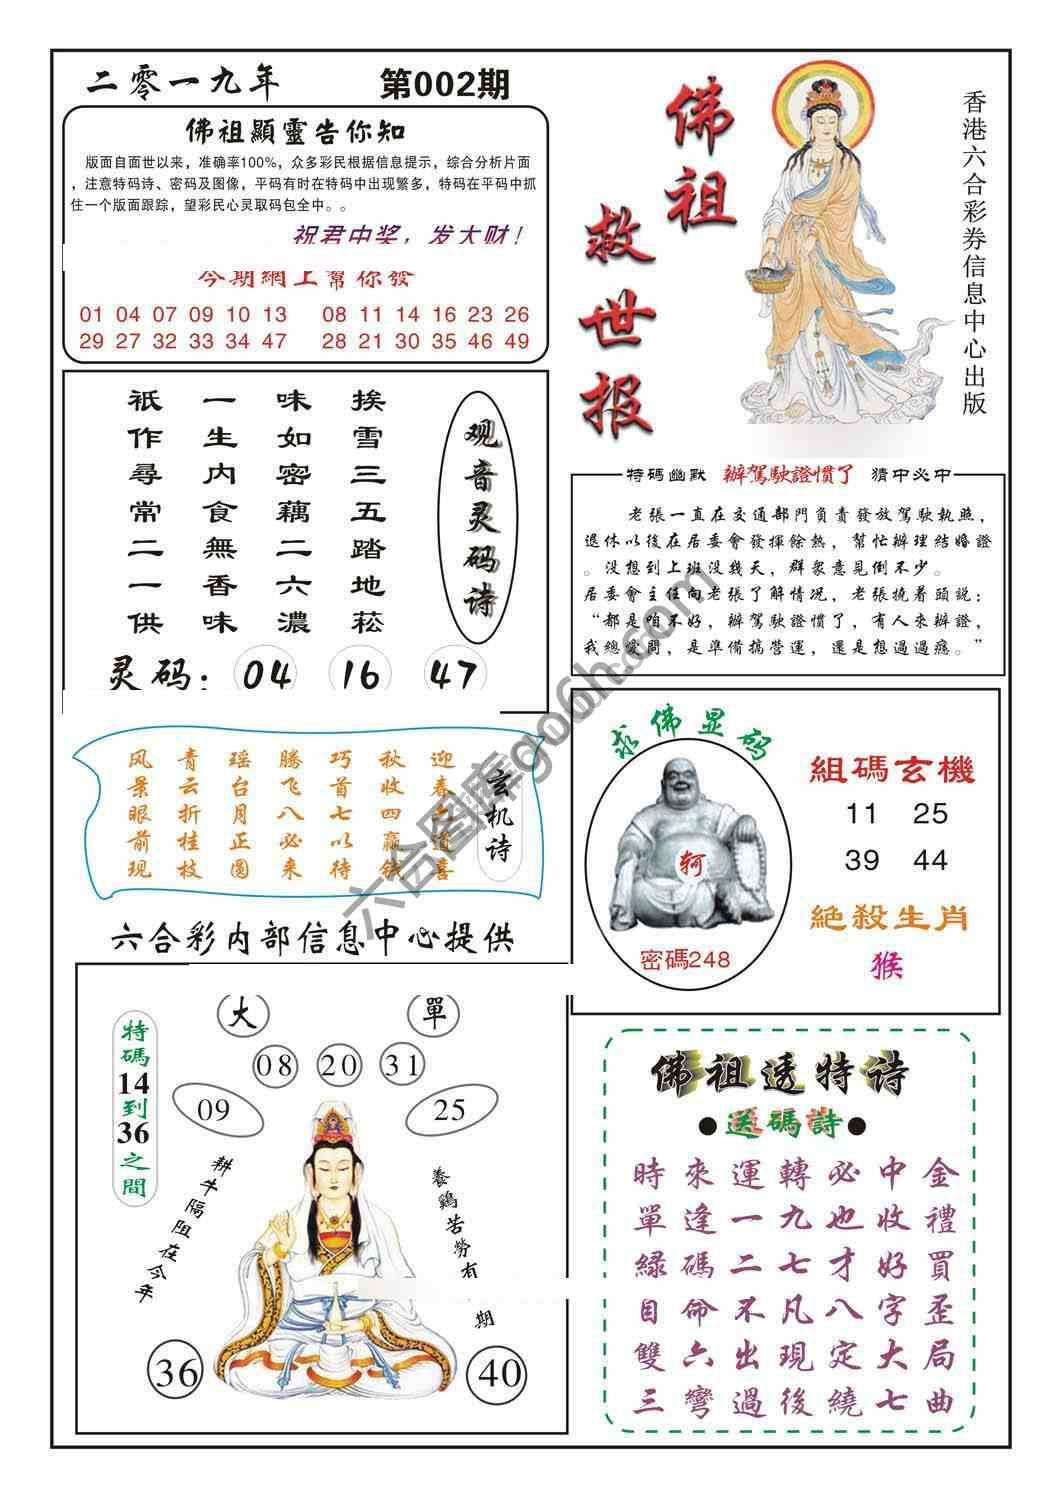 二零一九年
第002期
佛祖顯靈告你知
版面自面世以来，准确率100%，众多彩民根据信息提示，综合分析片面
，注意特码诗、密码及图像，平码有时在特码中出现繁多，特码在平码中抓
住一个版面跟踪，望彩民心灵取码包全中。。
祝君中奖，发大财！
今期網上幫你發
01 04 07 09 10 13 08 11 14 16 23 26
29 27 32 33 34 47 28 21 30 35 46 49
佛祖
救世报
香港六合彩券信息中心出版
观音灵码诗
挨雪三五踏地菘
味如密藕二六濃
一生内食無香味
祇作尋常二一供
灵码：04 16 47
特碼幽默 辦駕駛證慣了 猜中必中
老張一直在交通部門負責發放駕駛執照，
退休以後在居委會發揮餘熱，幫忙辦理結婚證
。没想到上班没幾天，群衆意見倒不少。
居委會主任向老張了解情况，老張撓着頭説：
“都是咱不好，辦駕駛證慣了，有人來辦證，
我總愛問，是準備搞營運，還是想過過癮。”
玄机诗
迎春二道喜
秋收四赢钱
巧首七以待
腾飞八必来
瑶台月正圆
青云折桂枝
风景眼前现
六合彩内部信息中心提供
求佛显码
轲
密碼248
組碼玄機
11 25
39 44
絶殺生肖
猴
大 單
08 20 31
09 25
特碼14到36之間
耕牛隔阻在今年
養鷄苦勞有期
36 40
佛祖透特诗
●送碼詩●
時來運轉必中金
單逢一九也收禮
緑碼二七才好買
目命不凡八字歪
雙六出現定大局
三彎過後繞七曲
六合图库go6h.com